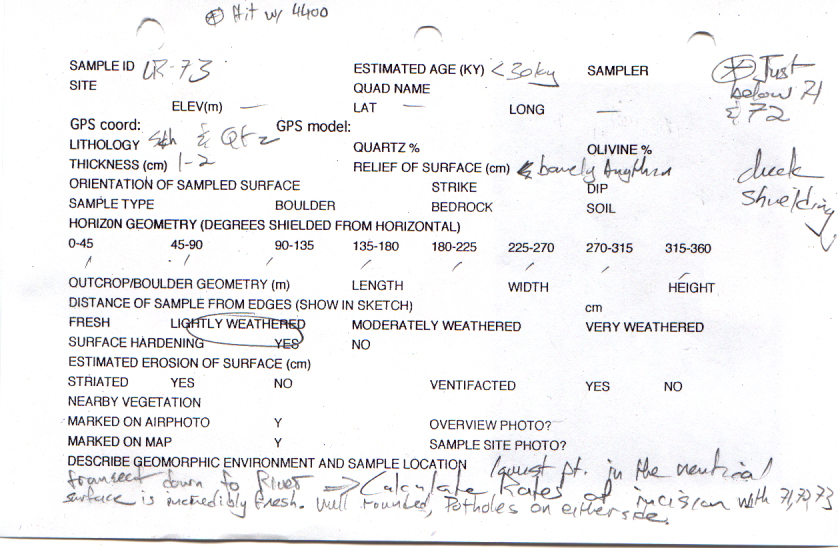 ⊛ Hit w/ 4400
SAMPLE ID LR-73 ESTIMATED AGE (KY) <30ky SAMPLER ⊛ Just
SITE QUAD NAME below 71
ELEV(m) — LAT — LONG — & 72
GPS coord: GPS model:
LITHOLOGY Sch & Qtz QUARTZ % OLIVINE %
THICKNESS (cm) 1-2 RELIEF OF SURFACE (cm) barely Anything check
ORIENTATION OF SAMPLED SURFACE STRIKE DIP shielding
SAMPLE TYPE BOULDER BEDROCK SOIL
HORIZON GEOMETRY (DEGREES SHIELDED FROM HORIZONTAL)
0-45 45-90 90-135 135-180 180-225 225-270 270-315 315-360
/ / / / / / / /
OUTCROP/BOULDER GEOMETRY (m) LENGTH WIDTH HEIGHT
DISTANCE OF SAMPLE FROM EDGES (SHOW IN SKETCH) cm
FRESH LIGHTLY WEATHERED MODERATELY WEATHERED VERY WEATHERED
SURFACE HARDENING YES NO
ESTIMATED EROSION OF SURFACE (cm)
STRIATED YES NO VENTIFACTED YES NO
NEARBY VEGETATION
MARKED ON AIRPHOTO Y OVERVIEW PHOTO?
MARKED ON MAP Y SAMPLE SITE PHOTO?
DESCRIBE GEOMORPHIC ENVIRONMENT AND SAMPLE LOCATION lowest pt. in the vertical
transect down to River => Calculate Rates of incision with 71,72,73
surface is incredibly fresh. well rounded, Potholes on either side.